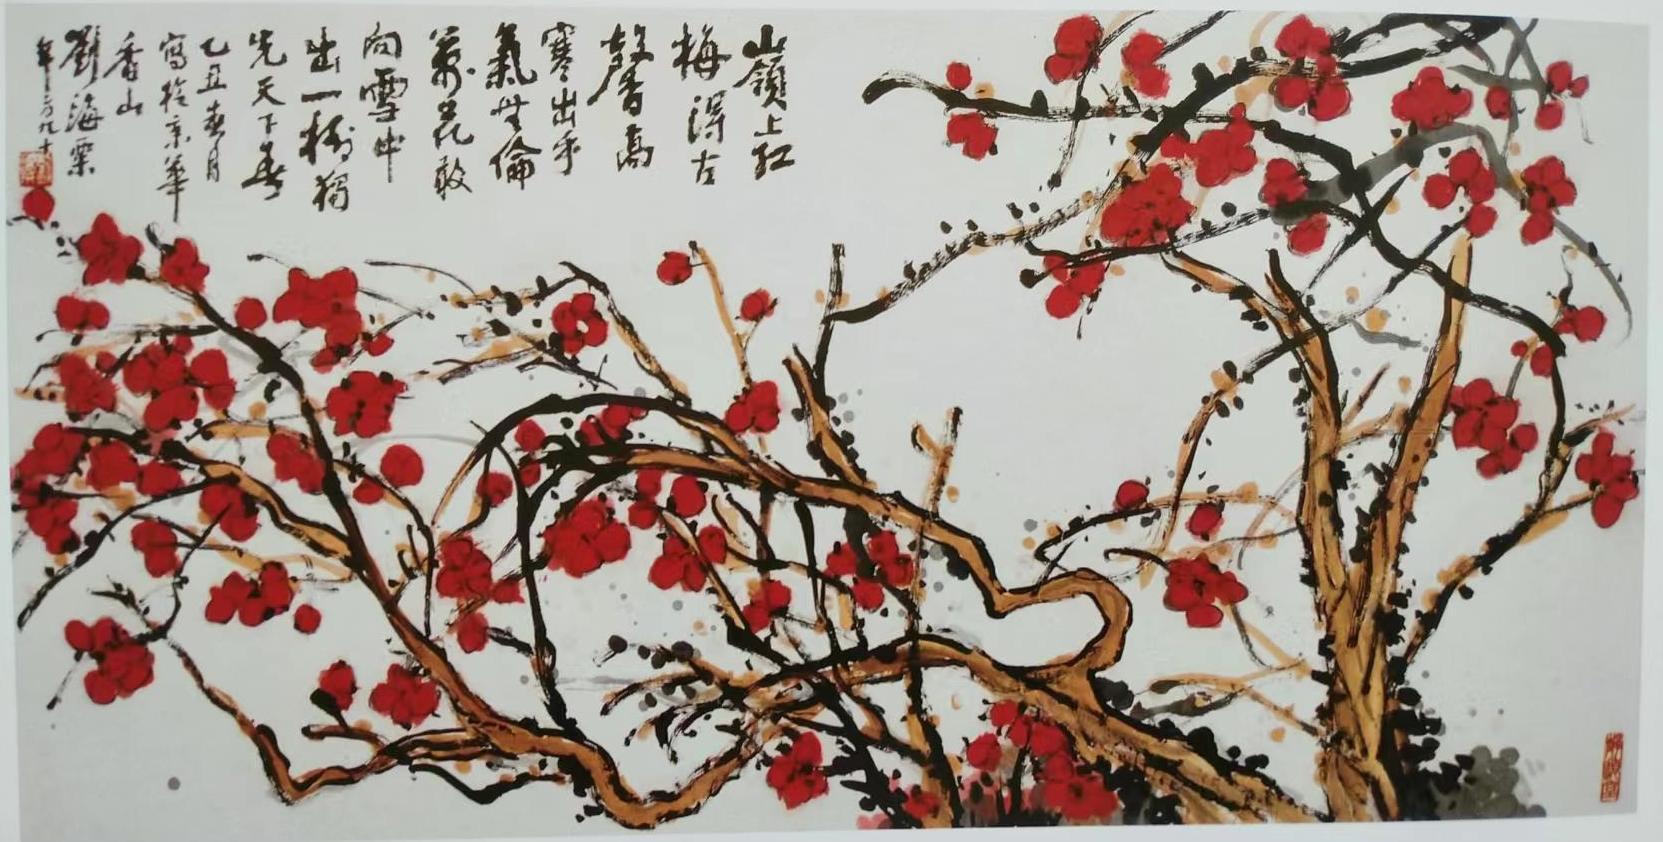 山嶺上紅
梅得古
馨高
寒出乎
氣無倫
萬花敢
向雪中
出一樹獨
先天下春
乙丑春月
寫於京華
香山
劉海粟
年方九十